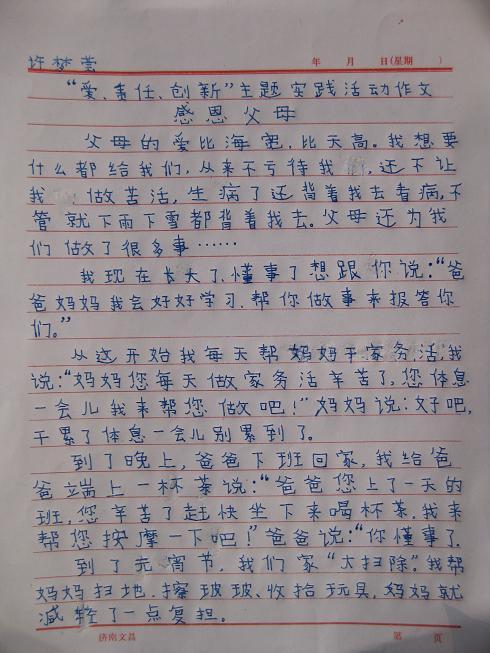 许梦莹
年 月 日(星期 )
“爱、责任、创新”主题实践活动作文
感恩父母
父母的爱比海宽,比天高。我想要
什么都给我们,从来不亏待我 ,还不让
我 做苦活,生病了还背着我去看病,不
管就下雨下雪都背着我去。父母还为我
们做了很多事……
我现在长大了,懂事了想跟你说:“爸
爸妈妈我会好好学习,帮你做事来报答你
们。”
从这开始我每天帮妈妈干家务活,我
说:“妈妈您每天做家务活辛苦了,您体息
一会儿我来帮您做吧!”妈妈说:好吧,
干累了体息一会儿别累到了。
到了晚上,爸爸下班回家,我给爸
爸端上一杯茶说:“爸爸您上了一天的
班,您辛苦了赶快坐下来喝杯茶,我来
帮您按摩一下吧!”爸爸说:“你懂事了.
到了元宵节,我们家“大扫除”.我帮
妈妈扫地.擦玻玻、收拾玩具,妈妈就
减轻了一点复担。
济南文昌
第 页